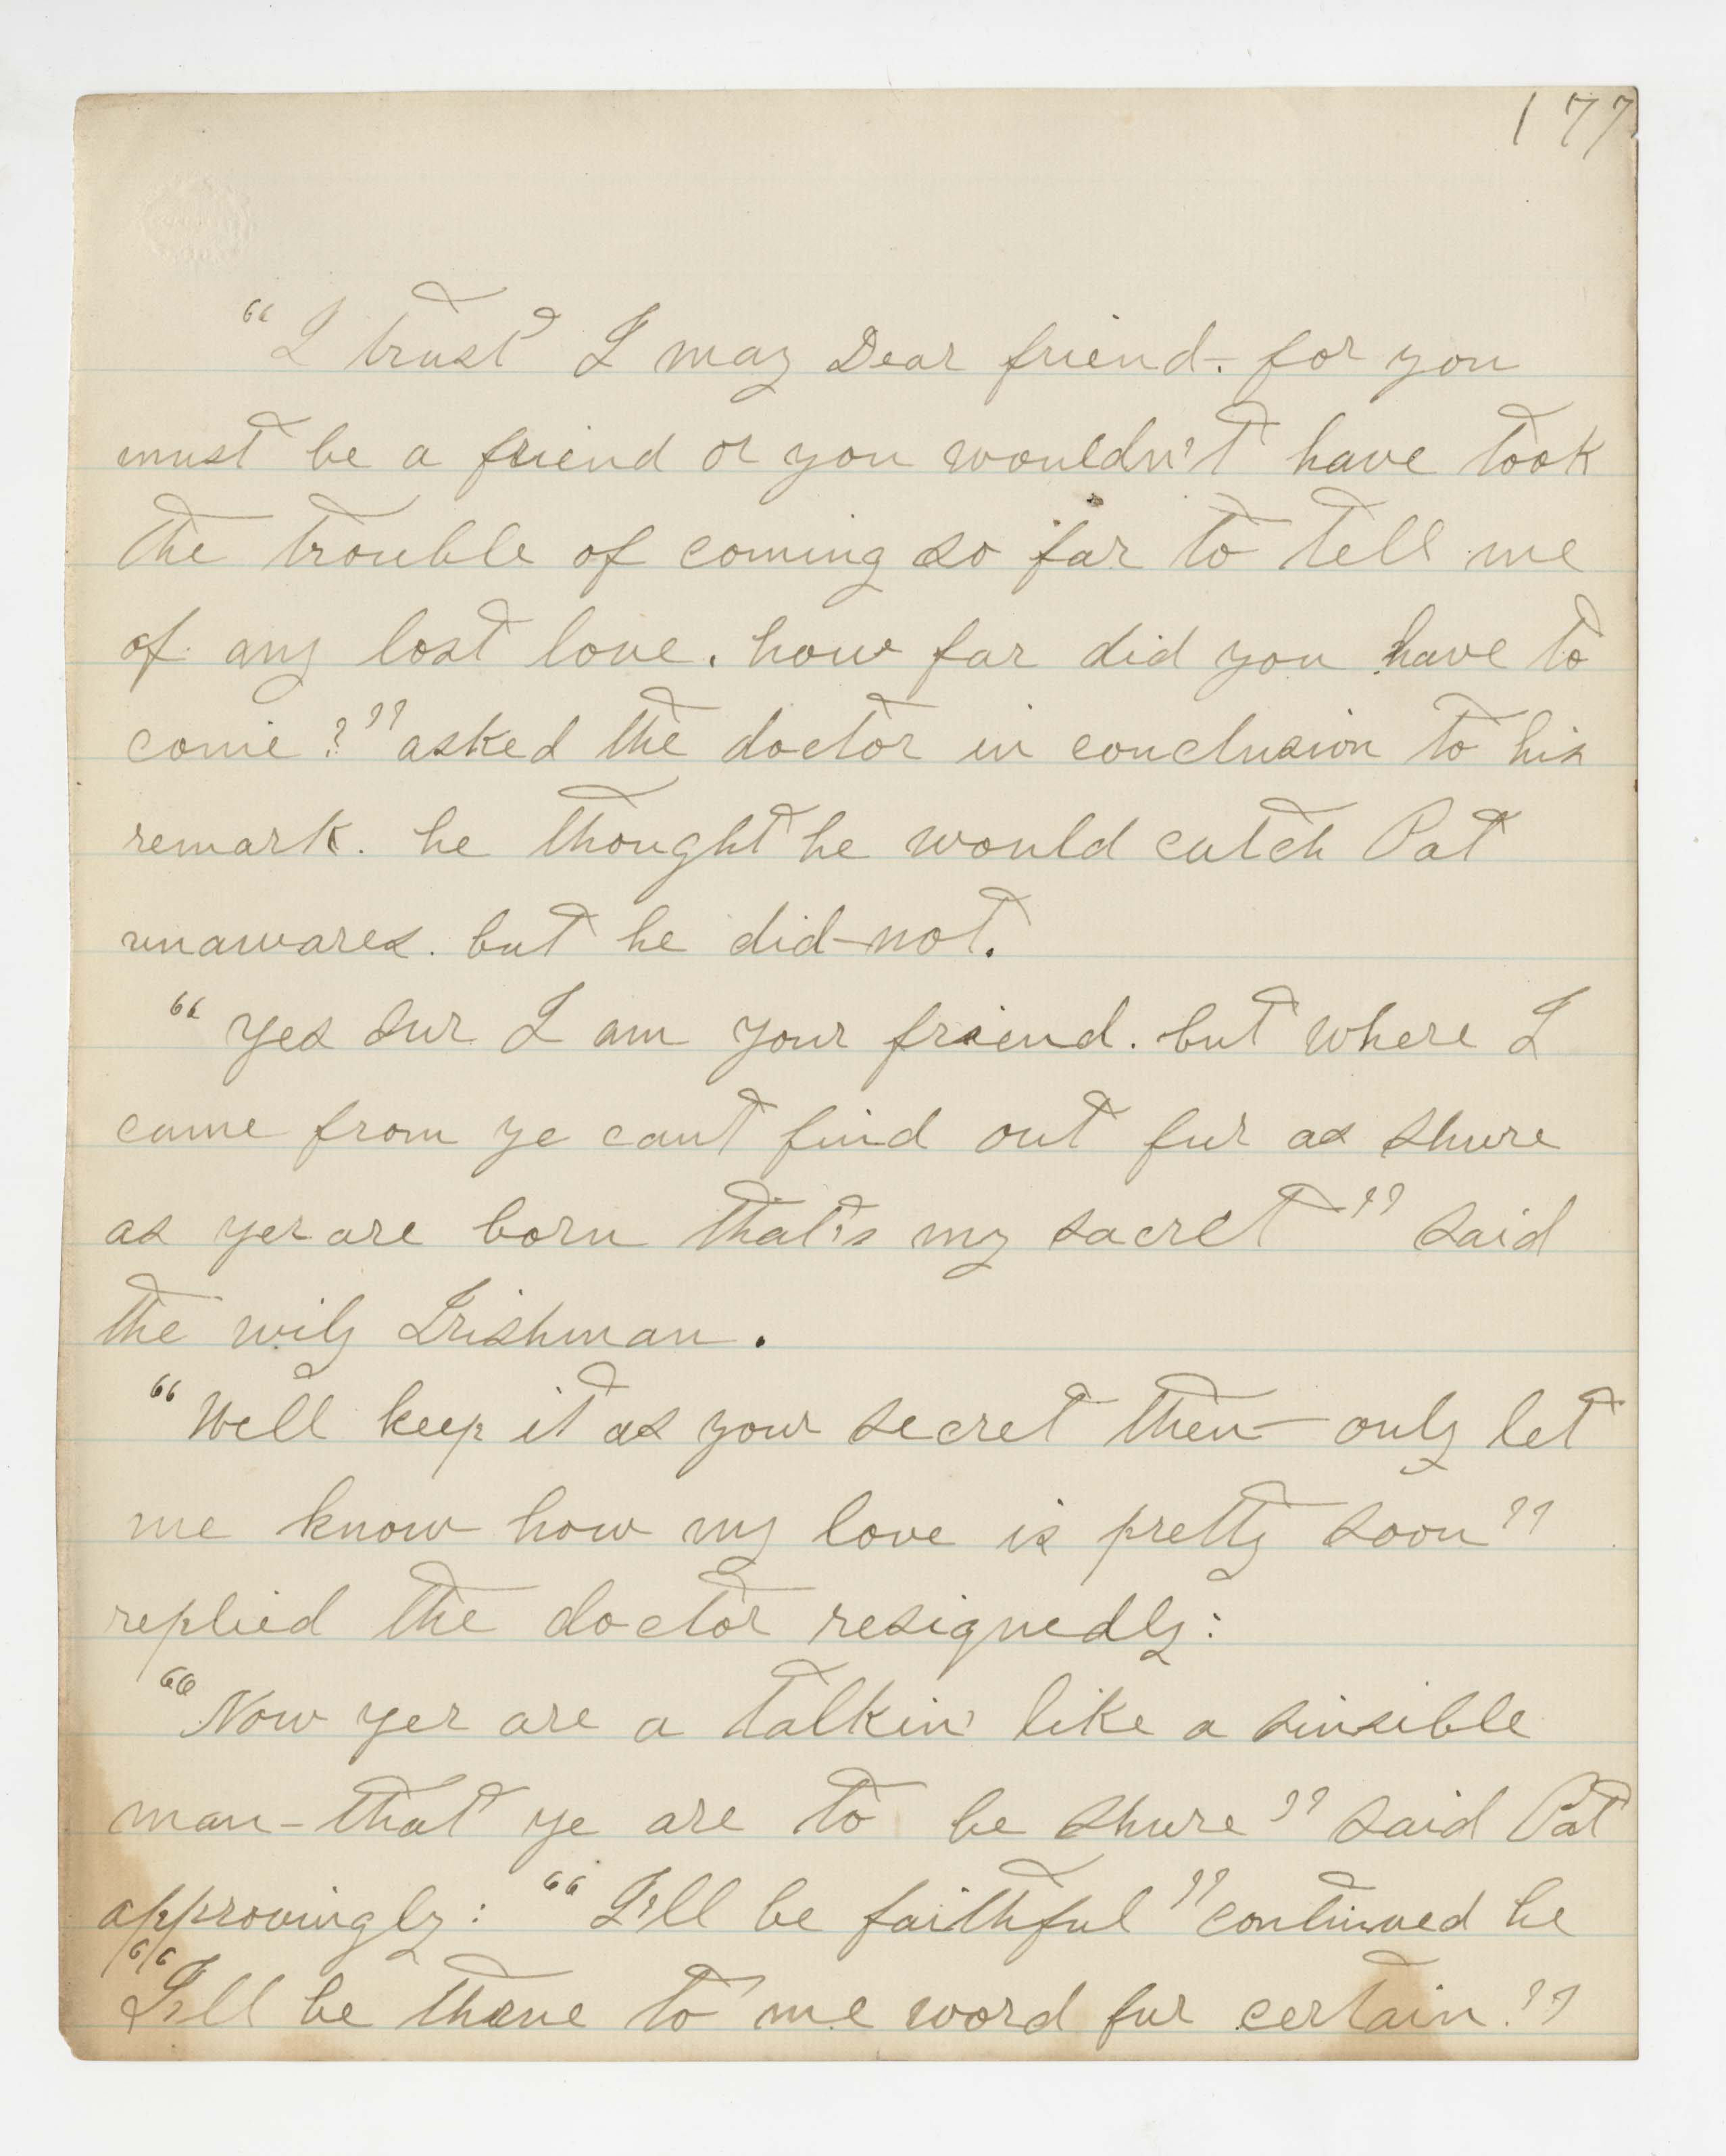 177
"I trust I may Dear friend - for you
must be a friend or you wouldn't have took
the trouble of coming so far to tell me
of my lost love. how far did you have to
come?" asked the doctor in conclusion to his
remark. he thought he would catch Pat
unawares. but he did-not.
"Yes sur I am your friend. but where I
came from ye cant find out fur as shure
as yer are born that's my sacret" said
the wily Irishman.
"Well keep it as your secret then - only let
me know how my love is pretty soon"
replied the doctor resignedly:
"Now yer are a talkin' like a sinsible
man - that ye are to be shure" said Pat
approvingly: "I'll be faithful" continued he
"I'll be thrue to me word fur certain."